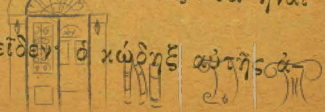 εἶδεν· ὁ κώδηξ αὐτῆς ἀ-